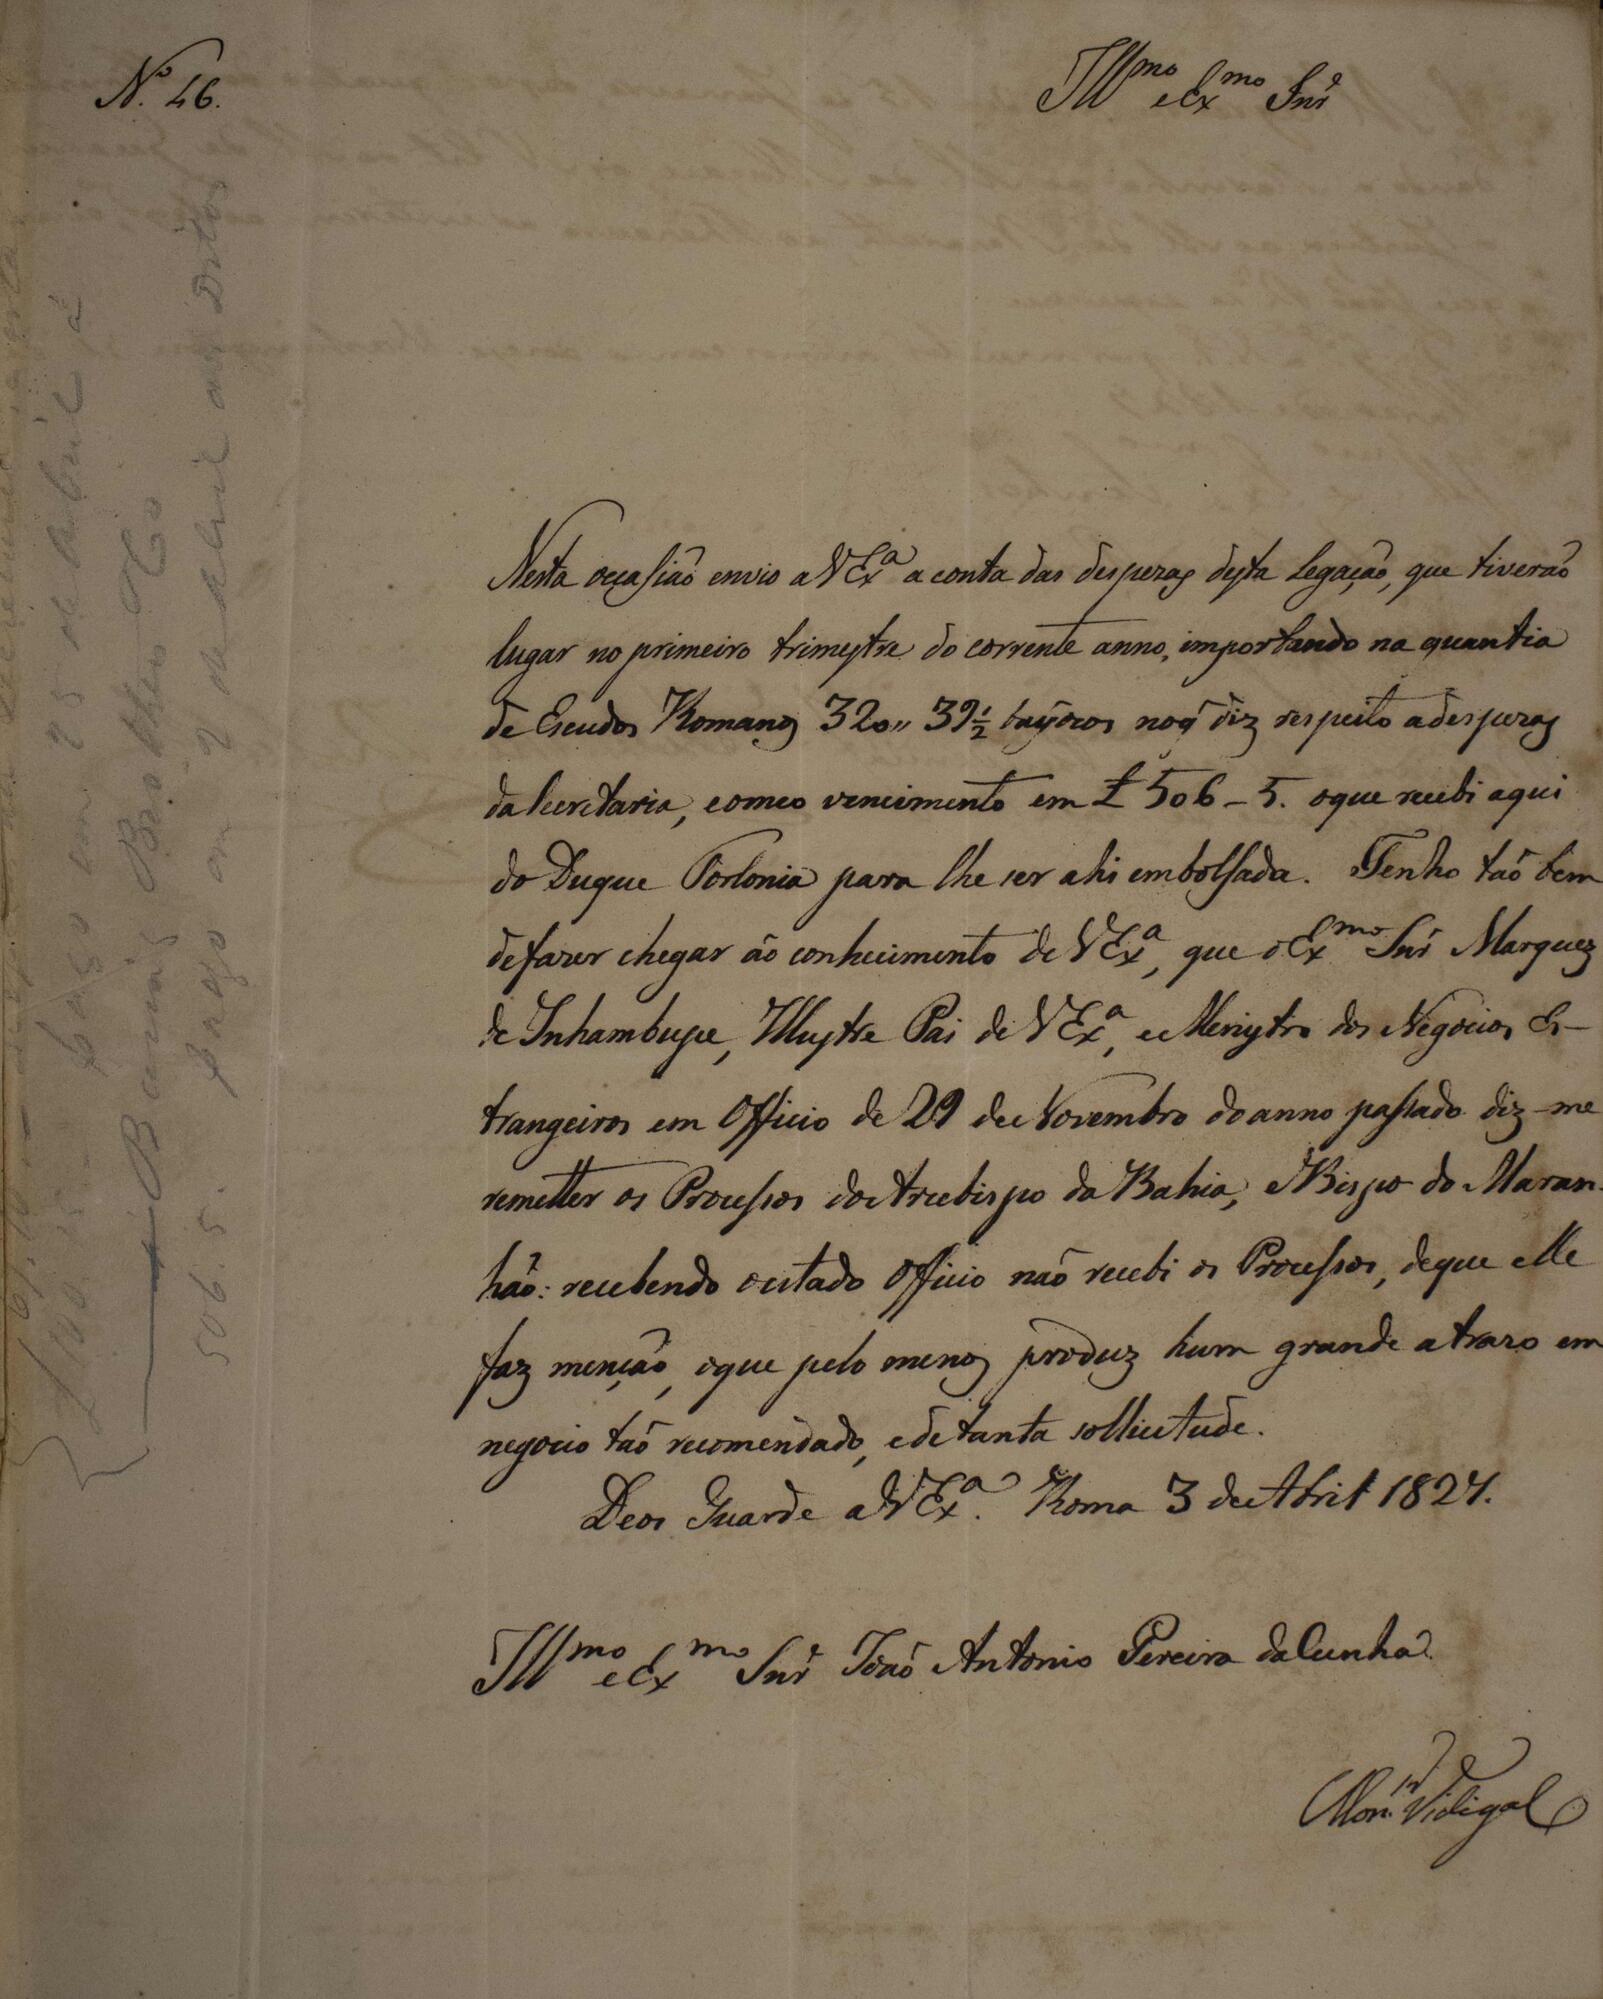 Nº 46.
Illmo e Exmo Snr
Nesta occasião envio a V Exa a conta das despezas desta Legação, que tiverão
lugar no primeiro trimestre do corrente anno, importando na quantia
de Escudos Romanos 320,, 39½ bayocos no q̃ diz respeito a despezas
da Secretaria, e o meo vencimento em £ 506–5. o que recebi aqui
do Duque Torlonia para lhe ser ahi embolsada. Tenho tão bem
de fazer chegar áo conhecimento de V Exa, que o Exmo Snr Marquez
de Inhambupe, Illustre Pai de V Exa, e Menistro dos Negocios Es-
trangeiros em Officio de 29 de Novembro do anno passado diz-me
remetter os Processos do Arcebispo da Bahia, e Bispo do Maran-
hão: recebendo o citado Officio não recebi os Processos, de que elle
faz menção, o que pelo menos produz hum grande atrazo em
negocio tão recomendado, e de tanta sollicitude.
Deos Guarde a V Exa. Roma 3 de Abril 1827.
Illmo e Exmo Snr João Antonio Pereira da Cunha
Monr Vidigal
Pago em 25 de Abril á
Bazeth Brothers & Co
Pago em 2 de Abril aos Ditos
506.5.